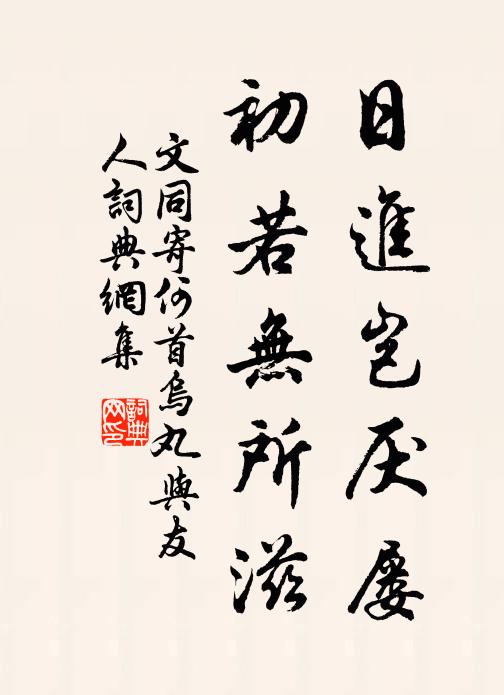 日進岂厌屡
初若無所滋
文同寄何首烏丸與友
人詞典網集
詞典
网印